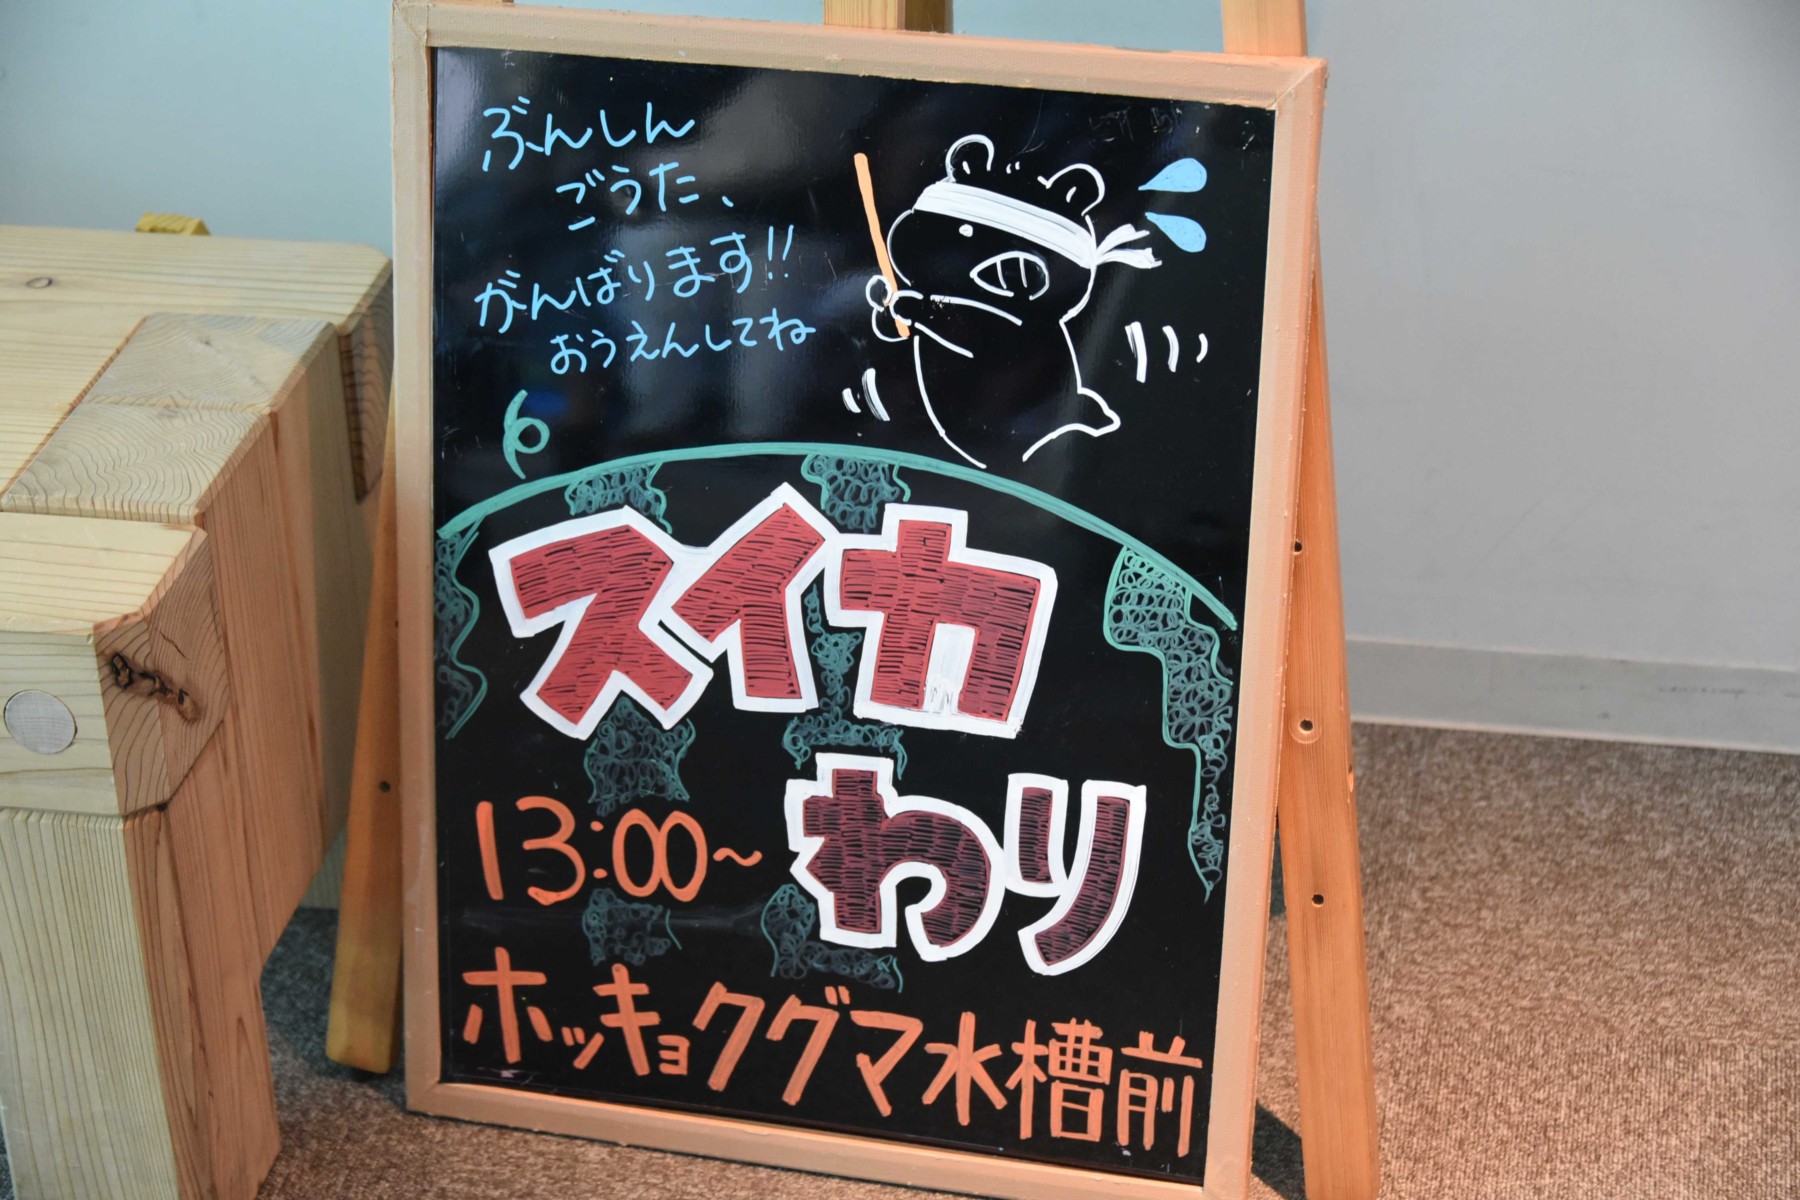 ぶんしん
ごうた、
がんばります!!
おうえんしてね
スイカ
わり
13:00~
ホッキョクグマ水槽前